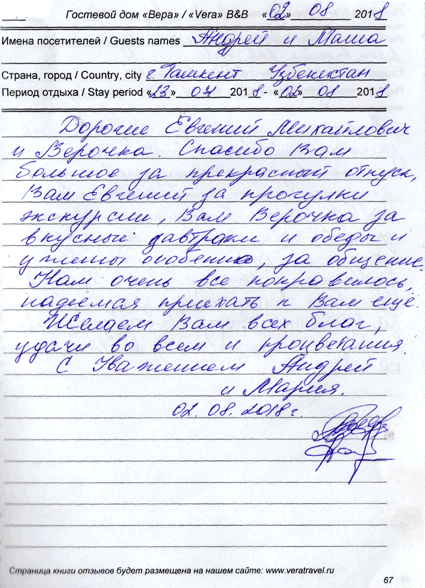 Гостевой дом «Вера» / «Vera» B&B «02» 08 2018
Имена посетителей / Guests names Андрей и Маша
Страна, город / Country, city г. Ташкент Узбекистан
Период отдыха / Stay period «23» 07 2018 - «02» 08 2018
Дорогие Евгений Михайлович
и Верочка. Спасибо Вам
большое за прекрасный отпуск,
Вам Евгений за прогулки
экскурсии, Вам Верочка за
вкусные завтраки и обеды и
ужины особенно, за общение.
Нам очень все понравилось,
надеемся приехать к Вам ещё.
Желаем Вам всех благ,
удачи во всем и процветания.
С Уважением Андрей
и Мария.
02.08.2018г.
Страница книги отзывов будет размещена на нашем сайте: www.veratravel.ru
67